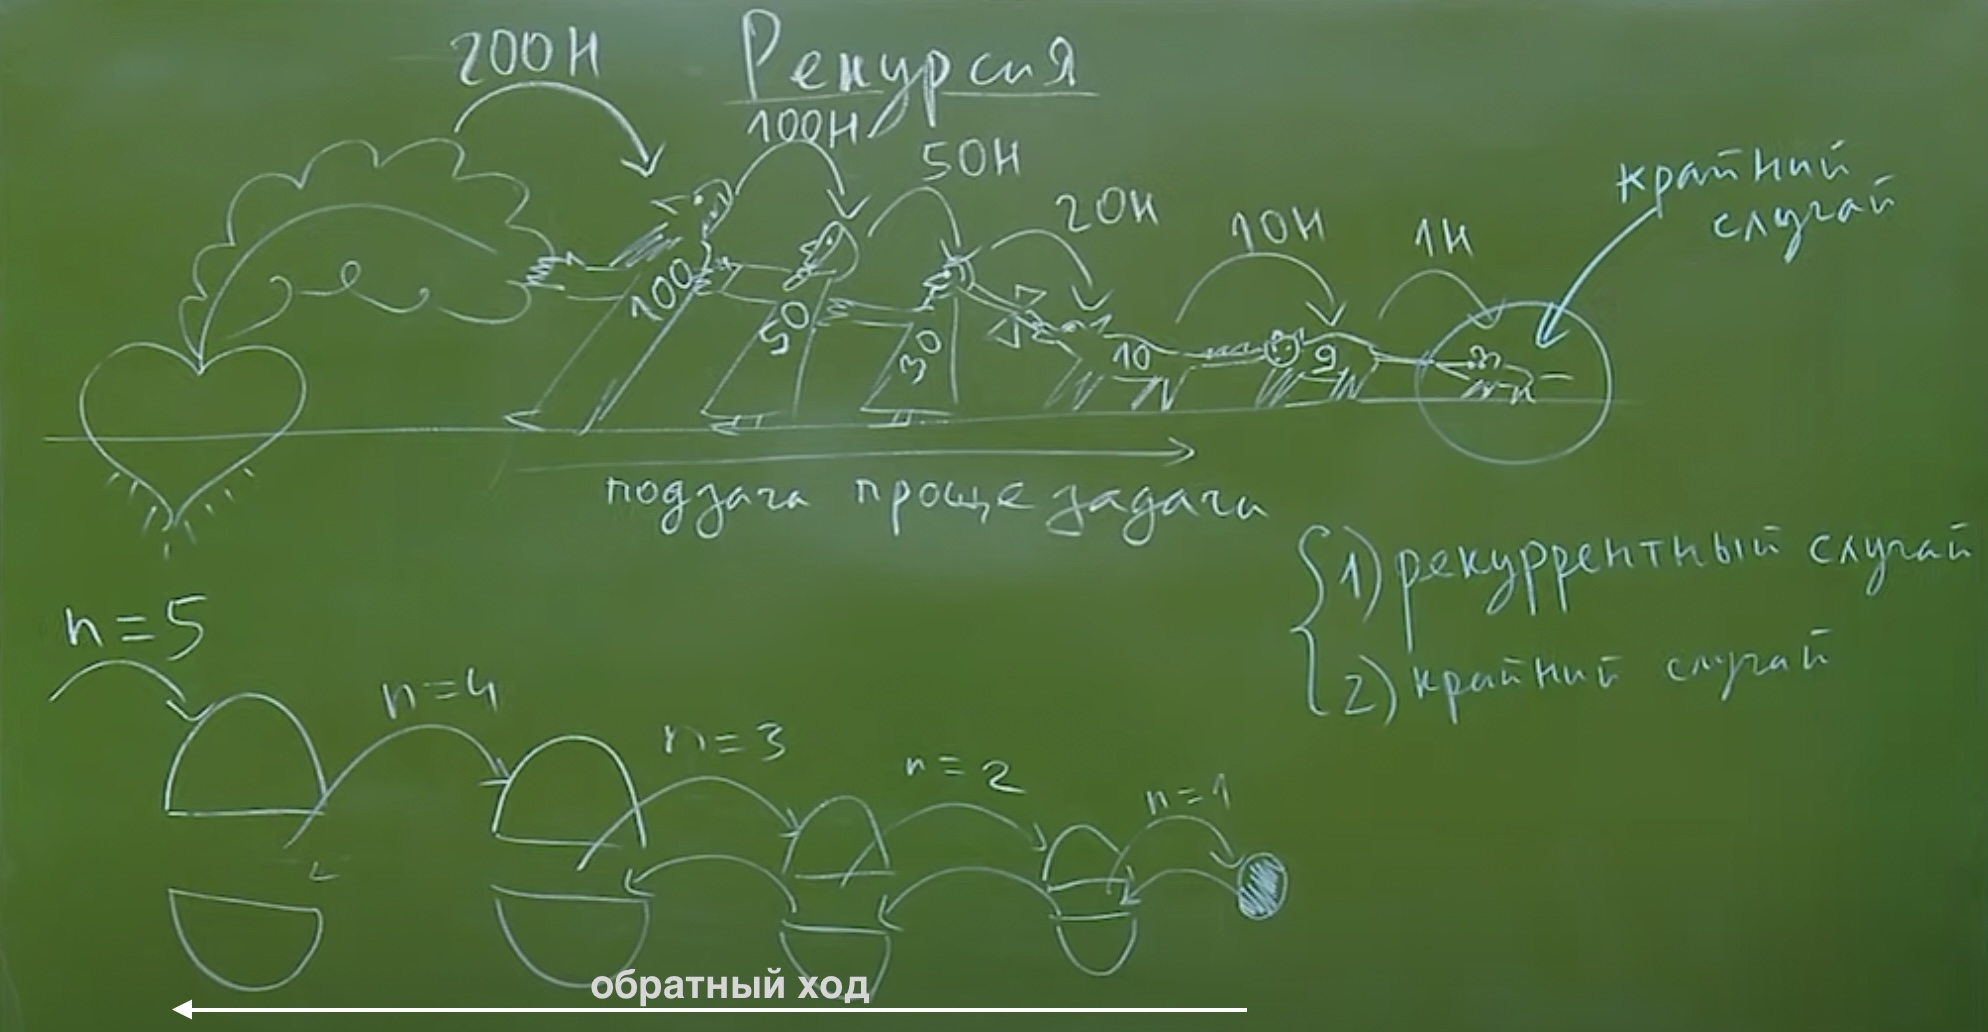 Рекурсия
200Н
100Н
50Н
20Н
10Н
1Н
крайний
случай
100
50
30
10
9
подзача проще задачи
1) рекуррентный случай
2) крайний случай
n=5
n=4
n=3
n=2
n=1
обратный ход